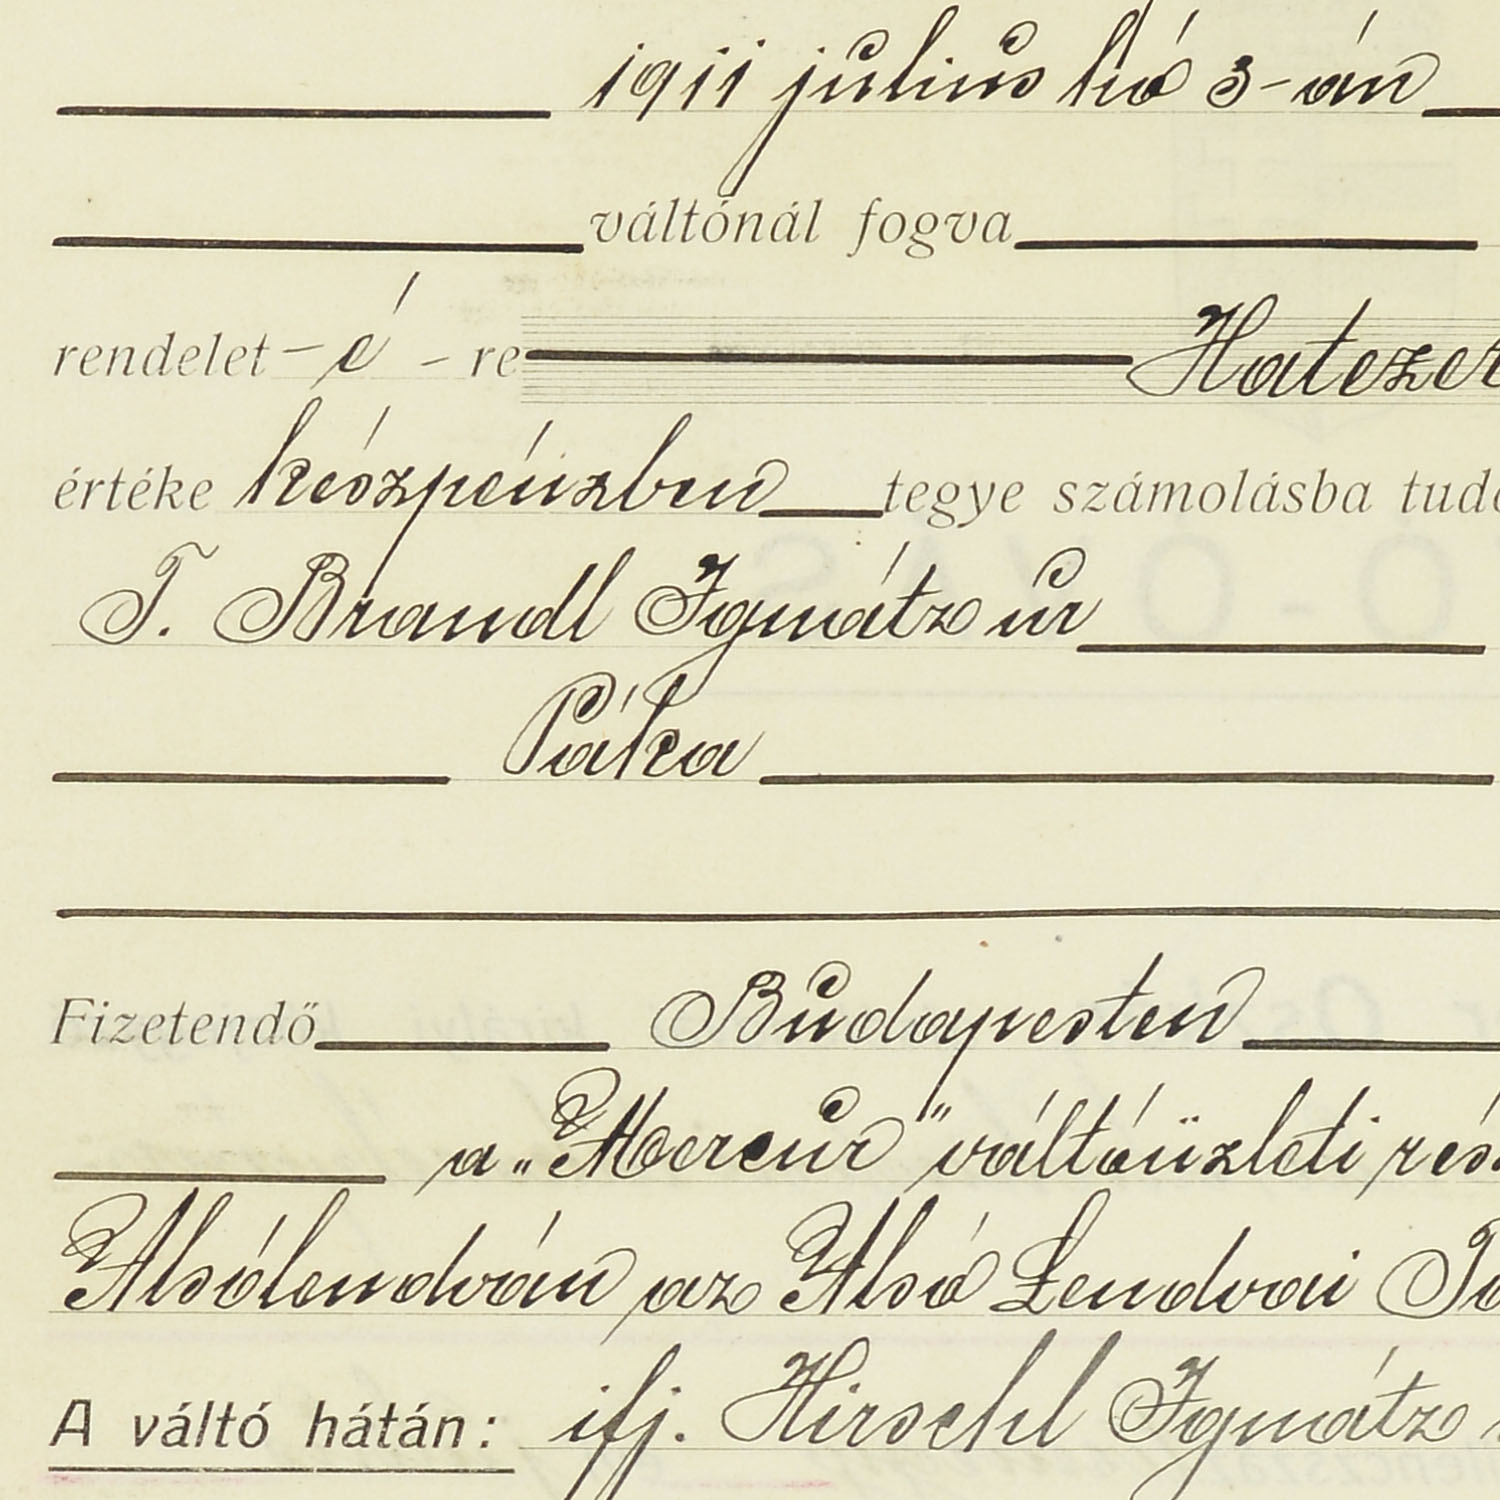 1911 július hó 3-án
váltónál fogva
rendelet - é - re Hatezer
értéke készpénzben tegye számolásba
T. Brandl Ignátz úr
Páka
Fizetendő Budapesten
a „Mercur" váltóüzleti
Alsólendván az Alsó Lendvai
A váltó hátán: ifj. Hirschl Ignátz